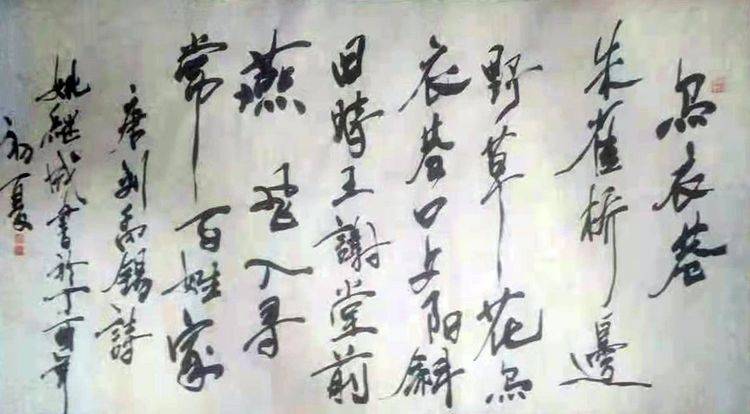 乌衣巷
朱雀桥邊
野草花乌
衣巷口夕阳斜
旧時王謝堂前
燕飛入寻
常百姓家
唐刘禹錫詩
姚継成書於丁酉年
初夏